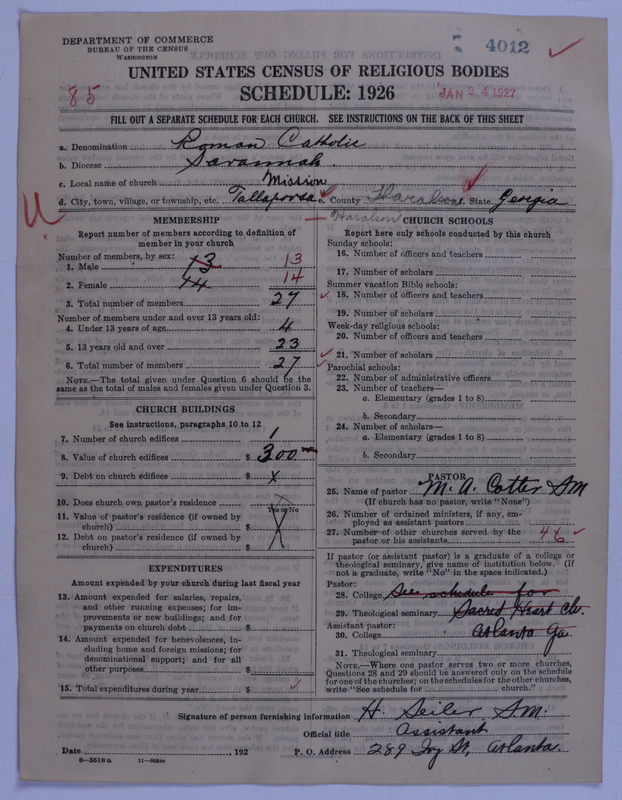 DEPARTMENT OF COMMERCE
BUREAU OF THE CENSUS
WASHINGTON
4012
UNITED STATES CENSUS OF RELIGIOUS BODIES
85
SCHEDULE: 1926
JAN 24 1927
FILL OUT A SEPARATE SCHEDULE FOR EACH CHURCH. SEE INSTRUCTIONS ON THE BACK OF THIS SHEET
a. Denomination Roman Catholic
b. Diocese Savannah
c. Local name of church Mission
d. City, town, village, or township, etc. Tallapoosa e. County Haralson f. State Georgia
Haralson
MEMBERSHIP
Report number of members according to definition of
member in your church
Number of members, by sex:
1. Male 13 13
2. Female 14 14
3. Total number of members 27
Number of members under and over 13 years old:
4. Under 13 years of age 4
5. 13 years old and over 23
6. Total number of members 27
NOTE.—The total given under Question 6 should be the
same as the total of males and females given under Question 3.
CHURCH BUILDINGS
See instructions, paragraphs 10 to 12
7. Number of church edifices 1
8. Value of church edifices $ 300
9. Debt on church edifices $ x
10. Does church own pastor's residence
Yes or No
11. Value of pastor's residence (if owned by
church) $
12. Debt on pastor's residence (if owned by
church) $
EXPENDITURES
Amount expended by your church during last fiscal year
13. Amount expended for salaries, repairs,
and other running expenses; for im-
provements or new buildings; and for
payments on church debt $
14. Amount expended for benevolences, in-
cluding home and foreign missions; for
denominational support; and for all
other purposes $
15. Total expenditures during year $
CHURCH SCHOOLS
Report here only schools conducted by this church
Sunday schools:
16. Number of officers and teachers
17. Number of scholars
Summer vacation Bible schools:
18. Number of officers and teachers
19. Number of scholars
Week-day religious schools:
20. Number of officers and teachers
21. Number of scholars
Parochial schools:
22. Number of administrative officers
23. Number of teachers—
a. Elementary (grades 1 to 8)
b. Secondary
24. Number of scholars—
a. Elementary (grades 1 to 8)
b. Secondary
PASTOR
25. Name of pastor M. A. Cotter SM
(If church has no pastor, write "None")
26. Number of ordained ministers, if any, em-
ployed as assistant pastors
27. Number of other churches served by the
pastor or his assistants 46
If pastor (or assistant pastor) is a graduate of a college or
theological seminary, give name of institution below. (If
not a graduate, write "No" in the space indicated.)
Pastor:
28. College See schedule for
29. Theological seminary Sacred Heart Ch.
Assistant pastor:
30. College Atlanta Ga.
31. Theological seminary
NOTE.—Where one pastor serves two or more churches,
Questions 28 and 29 should be answered only on the schedule
for one of the churches; on the schedules for the other churches,
write "See schedule for church."
Signature of person furnishing information H. Seiler S.M.
Official title Assistant
Date , 192 P. O. Address 289 Ivy St, Atlanta.
8-5518a 11-9684a